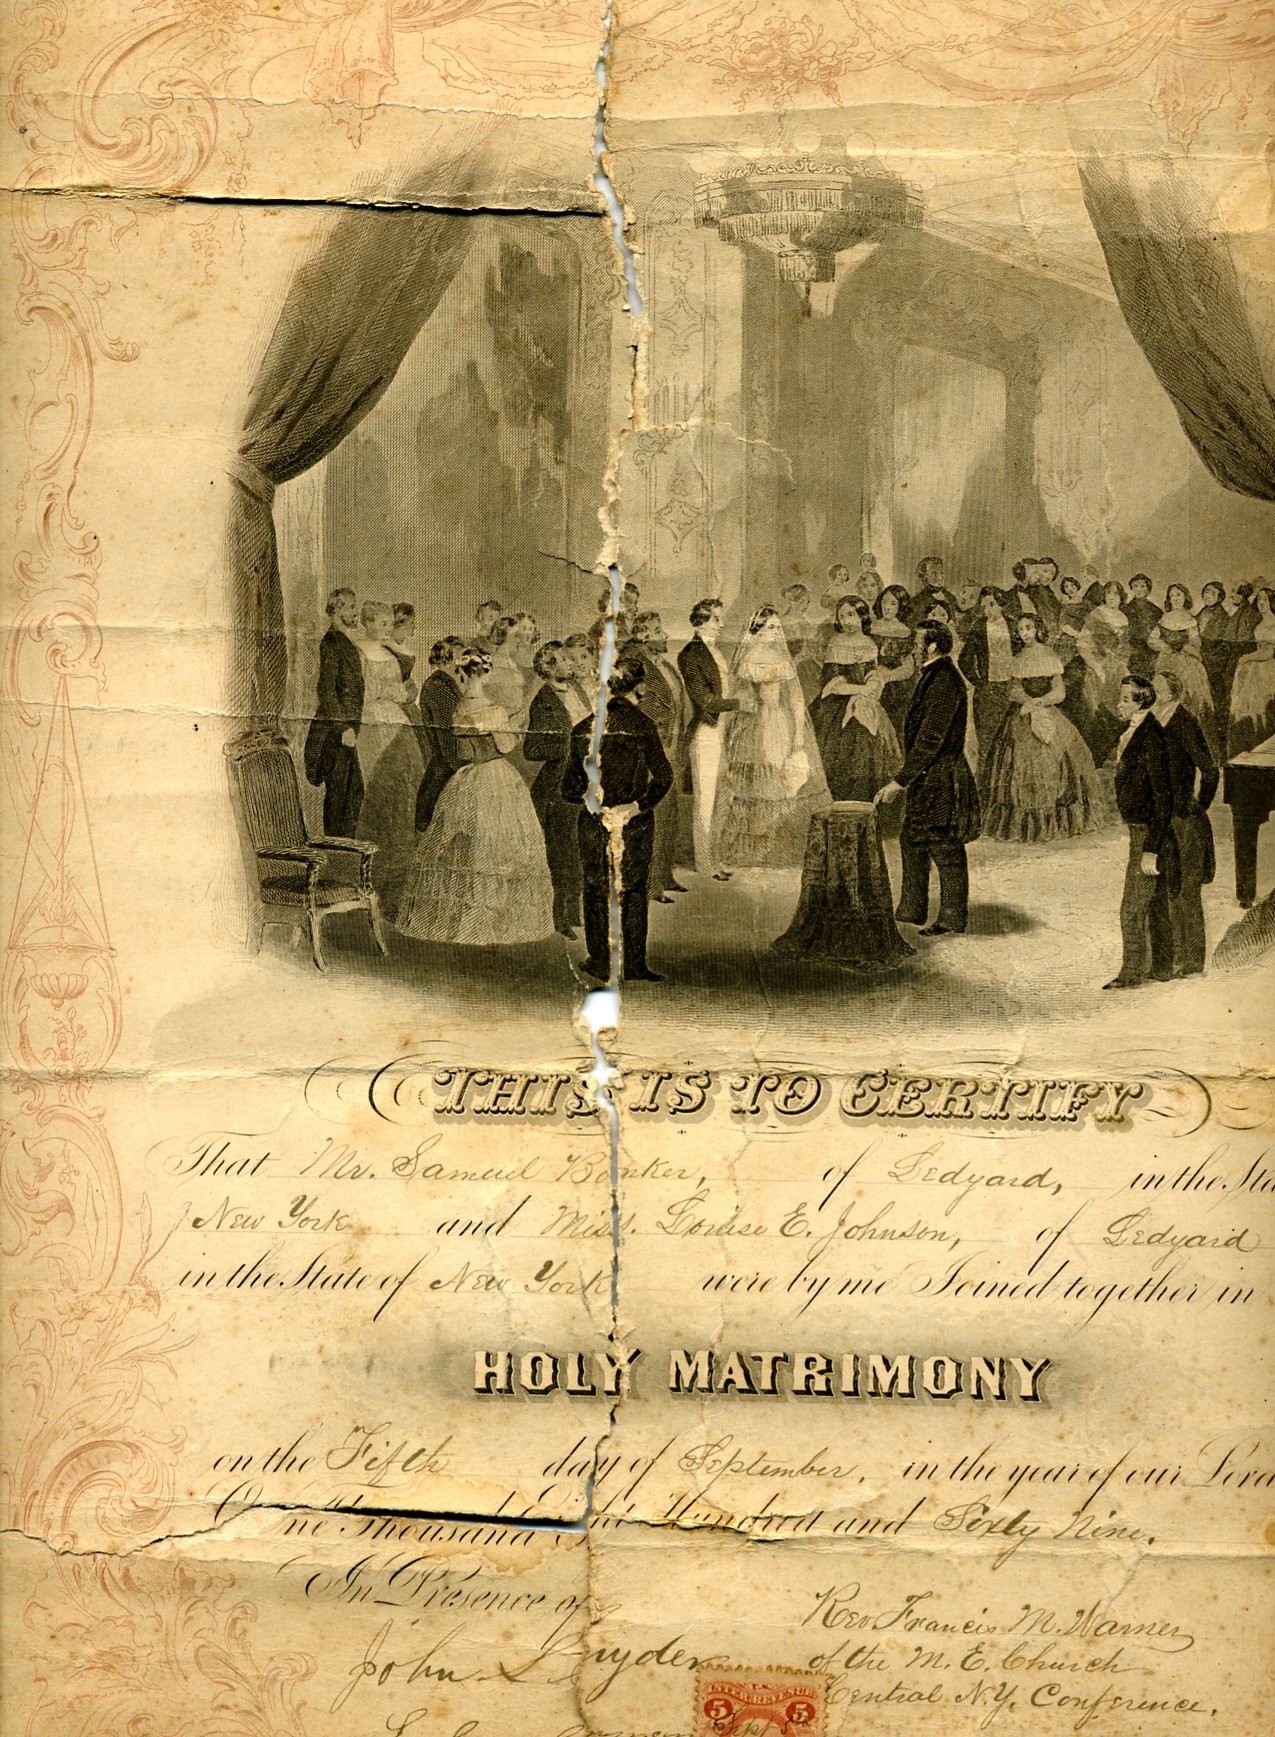 THIS IS TO CERTIFY
That Mr. Samuel Bonker, of Ledyard, in the Sta
New York and Miss. Louise E. Johnson, of Ledyard
in the State of New York were by me Joined together in
HOLY MATRIMONY
on the Fifth day of September, in the year of our Lord
One Thousand Eight Hundred and Sixty Nine.
In Presence of
John Snyder
Rev Francis M. Warner
of the M. E. Church
Central N.Y. Conference.
INTER. REVENUE
5 5
Sept 5